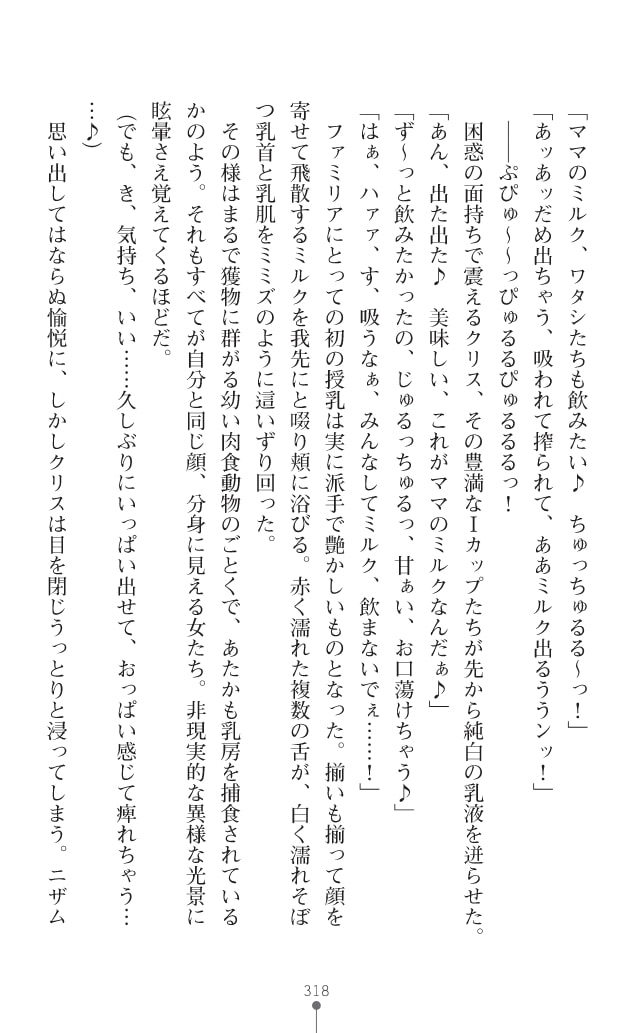 「ママのミルク、ワタシたちも飲みたい♪　ちゅっちゅるる～っ！」
「あッあッだめ出ちゃう、吸われて搾られて、ああミルク出るううンッ！」
――ぷぴゅ～～っぴゅるるぴゅるるるっ！
困惑の面持ちで震えるクリス、その豊満なＩカップたちが先から純白の乳液を迸らせた。
「あん、出た出た♪　美味しい、これがママのミルクなんだぁ♪」
「ず～っと飲みたかったの、じゅるっちゅるっ、甘ぁい、お口蕩けちゃう♪」
「はぁ、ハァァ、す、吸うなぁ、みんなしてミルク、飲まないでぇ……！」
ファミリアにとっての初の授乳は実に派手で艶かしいものとなった。揃いも揃って顔を
寄せて飛散するミルクを我先にと啜り頬に浴びる。赤く濡れた複数の舌が、白く濡れそぼ
つ乳首と乳肌をミミズのように這いずり回った。
その様はまるで獲物に群がる幼い肉食動物のごとくで、あたかも乳房を捕食されている
かのよう。それもすべてが自分と同じ顔、分身に見える女たち。非現実的な異様な光景に
眩暈さえ覚えてくるほどだ。
（でも、き、気持ち、いい……久しぶりにいっぱい出せて、おっぱい感じて痺れちゃう…
…♪）
思い出してはならぬ愉悦に、しかしクリスは目を閉じうっとりと浸ってしまう。ニザム
318